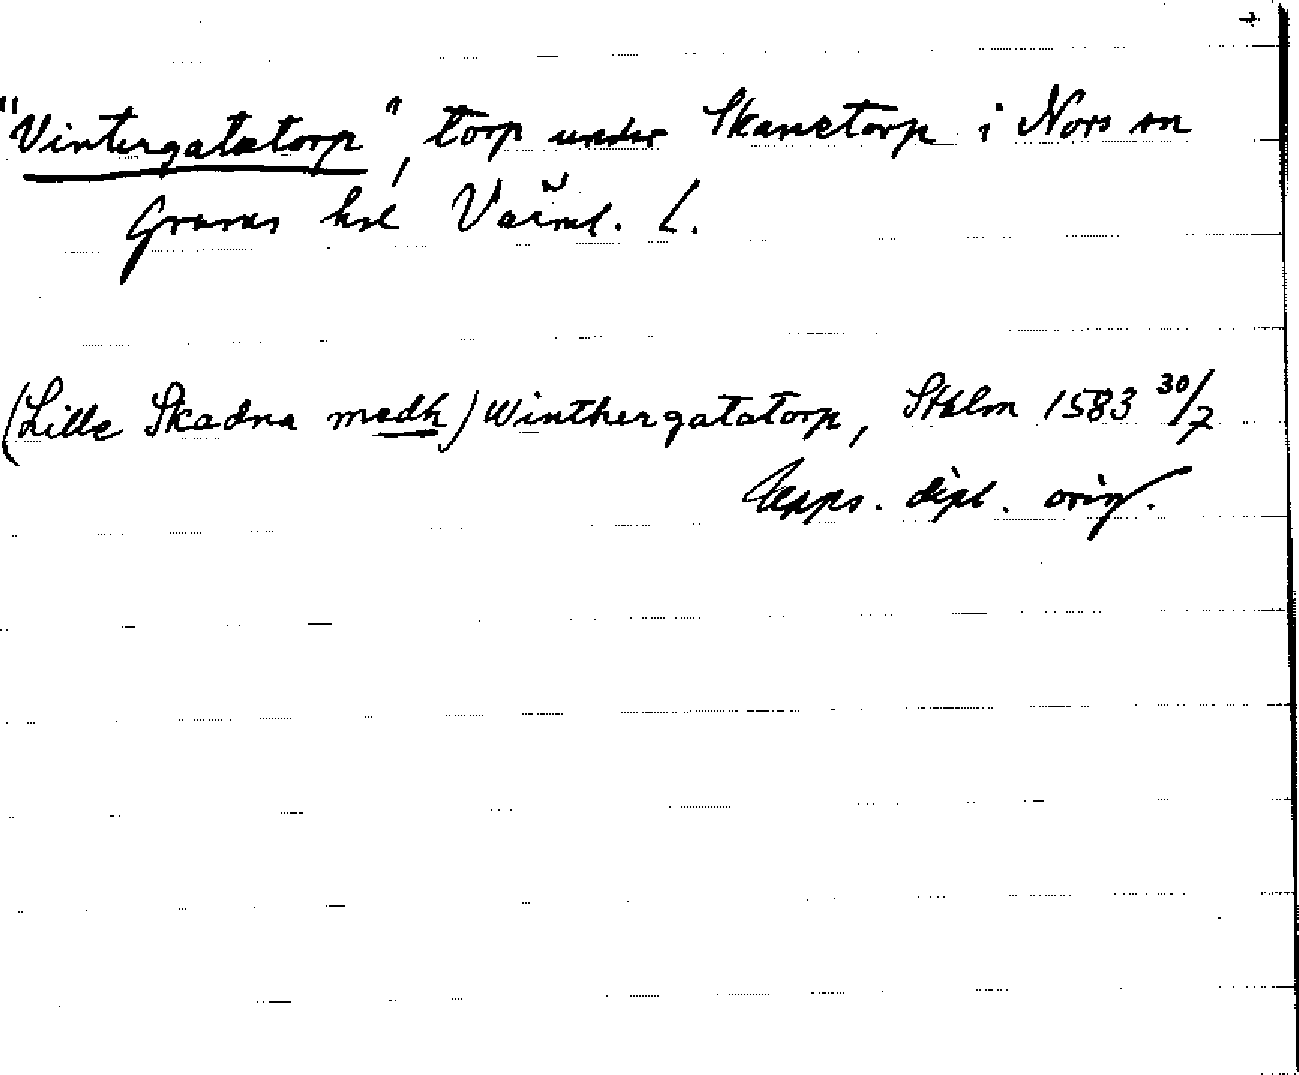 "Vintergatatorp", torp under Skanetorp i Nors sn
Grums hd Värml. L.
(Lille Skadna medh) Winthergatatorp, Sthlm 1583 30/7
Upps. dipl. orig.